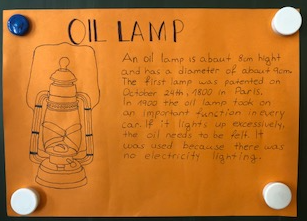 OIL LAMP
An oil lamp is about 8cm hight
and has a diameter of about 9cm.
The first lamp was patented on
October 24th, 1800 in Paris.
In 1900 the oil lamp took on
an important function in every
car. If it lights up excessively,
the oil needs to be felt. It
was used because there was
no electricity lighting.